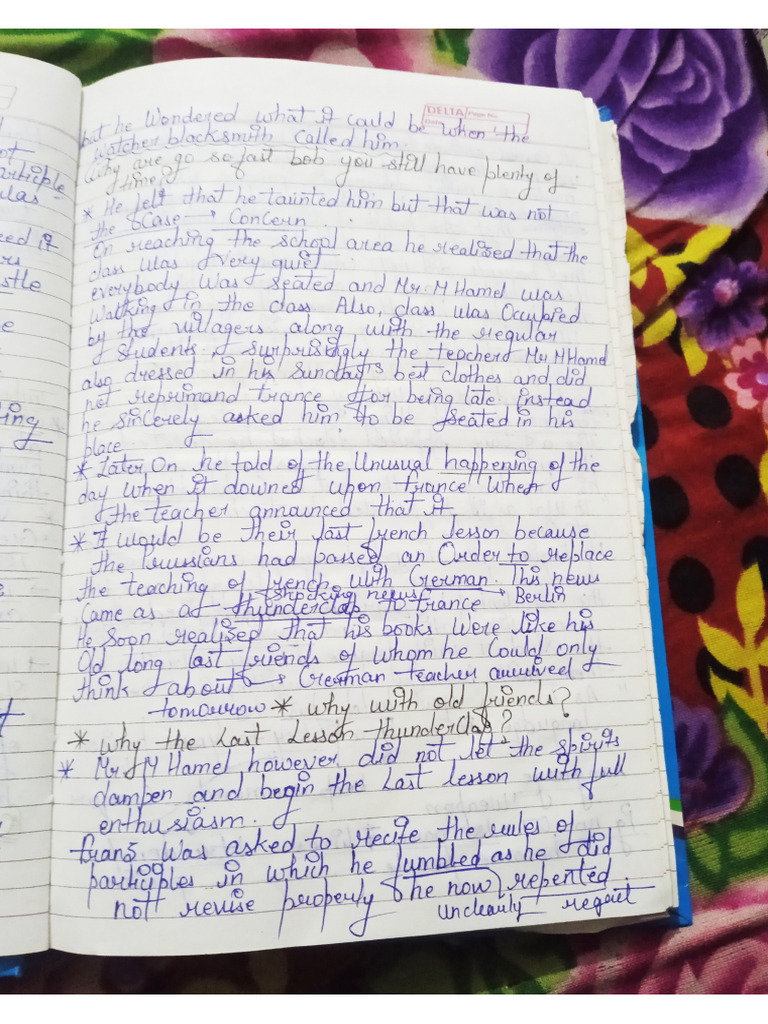 but he Wondered what it could be when the
DELTA Page No.
Date
Watcher blacksmith called him.
Why are go so fast bob you still have plenty of
time?
* He felt that he taunted him but that was not
the case → Concern
On reaching the school area he realised that the
class was very quiet
everybody was seated and Mr. M Hamel was
walking in the class. Also, class was Occupied
by the villagers along with the regular
students. Surprisingly the teacher Mr M Hamel
also dressed in his Sunday's best clothes and did
not reprimand france for being late. Instead
he sincerely asked him to be seated in his
place.
* Later, On he told of the Unusual happening of the
day when it downed upon france when
the teacher announced that it
* It would be their last french lesson because
the Prussians had passed an Order to replace
the teaching of french with German. This news
shocking news → Berlin
Came as a thunderclap to france
He soon realised that his books were like his
Old long last friends of whom he could only
think about → German teacher
tomorrow * why with old friends?
* why the Last Lesson thunderclap?
* Mr. M Hamel however did not let the spirits
dampen and begin the Last lesson with full
enthusiasm.
franz was asked to recite the rules of
participles in which he fumbled as he did
not revise properly he now repented.
unclearly regret